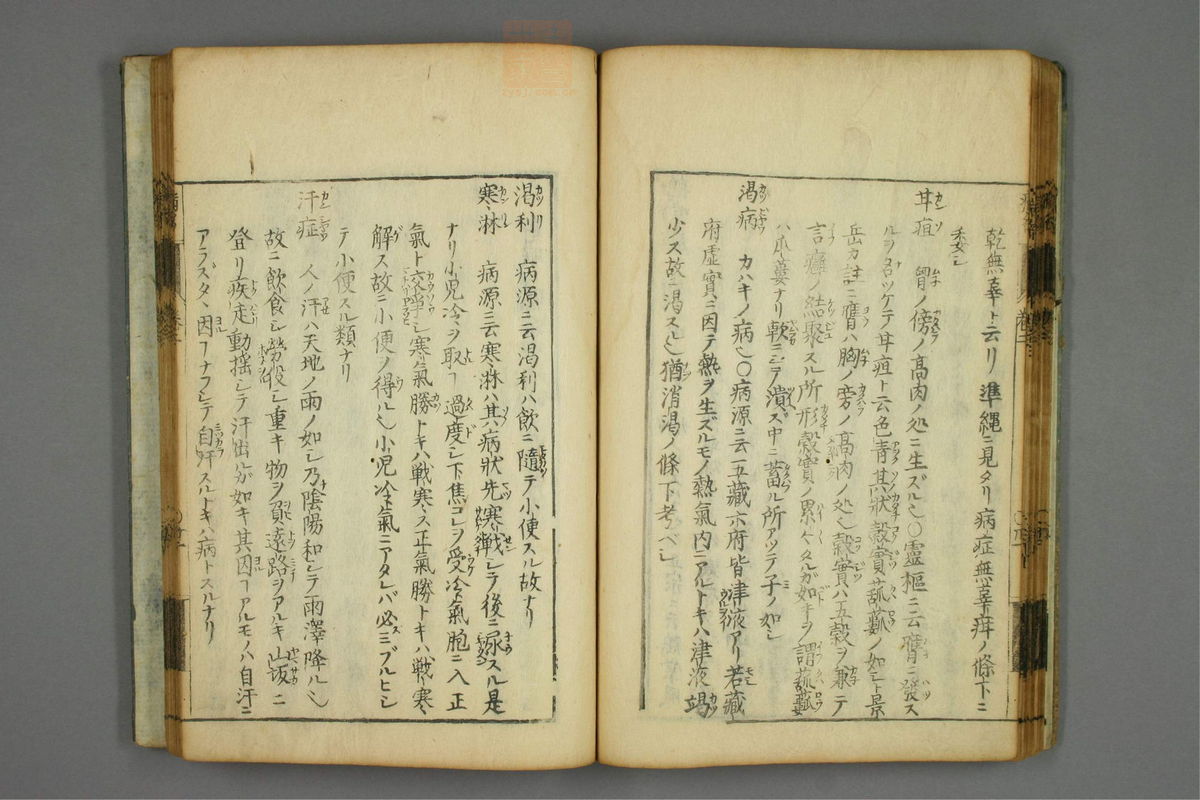 乾無辜ト云リ準繩ニ見タリ病症無辜疳ノ條下ニ
委シ
甘疽 胷ノ傍ノ高肉ノ処ニ生ズル也〇靈樞ニ云膺ニ發ス
ルヲ名ツケテ甘疽ト云色青其狀穀實䔧蔞ノ如シト景
岳カ註ニ膺ハ胸ノ旁ノ高肉ノ処也穀實ハ五穀ヲ兼ニテ
言癰ノ結聚スル所形穀實ノ累々タルガ如キヲ謂䔧蔞
ハ瓜蔞ナリ軟ニシテ潰ズ中ニ蓄ル所アツテ子ノ如シ
渴病 カハキノ病也〇病源ニ云五藏六府皆津液アリ若藏
府虚實ニ因テ熱ヲ生ズルモノ熱氣内ニアルトキハ津液竭
少ス故ニ渴スル也猶消渴ノ條下考ベシ
渴利 病源ニ云渴利ハ飲ニ隨テ小便スル故ナリ
寒淋 病源ニ云寒淋ハ其病狀先寒戰シテ後ニ尿スル是
ナリ小兒冷ヲ取フ過度シ下焦コレヲ受冷氣胞ニ入正
氣ト交爭シ寒氣勝トキハ戰寒ス正氣勝トキハ戰寒
解ス故ニ小便ノ得ル也小兒冷氣ニアタレバ必ミブルヒシ
テ小便スル類ナリ
汗症 人ノ汗ハ天地ノ雨ノ如シ乃陰陽和シテ雨澤降ル也
故ニ飲食シ勞役シ重キ物ヲ負遠路ヲアルキ山坂ニ
登リ疾走動揺シテ汗出ルガ如キ其因フアルモノハ自汗ニ
アラズタヾ因フナフシテ自汗スルトキハ病トスルナリ